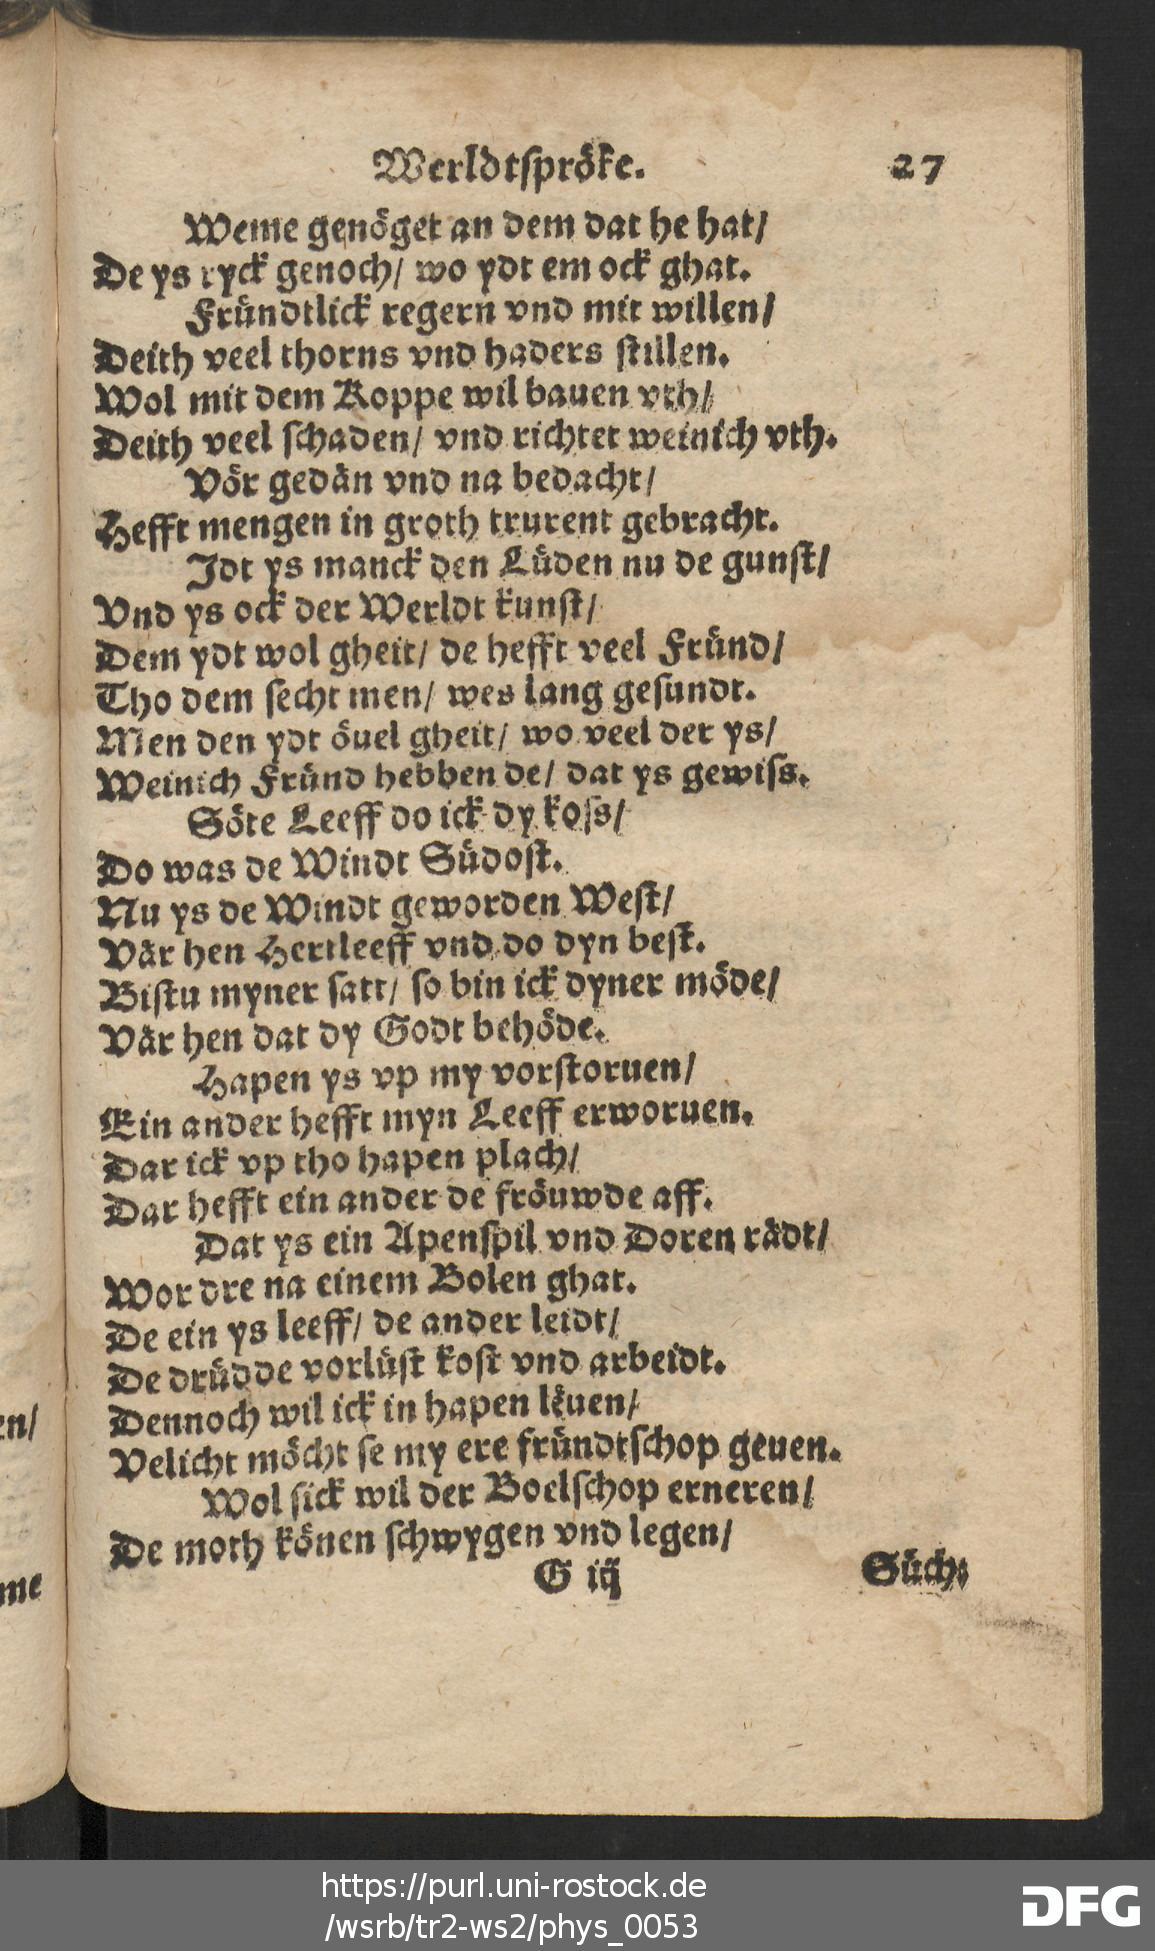 Werldtspröke. 27
Weme genöget an dem dat he hat/
De ys ryck genoch/ wo ydt em ock ghat.
Fründtlick regern vnd mit willen/
Deith veel thorns vnd haders stillen.
Wol mit dem Koppe wil bauen vth/
Deith veel schaden/ vnd richtet weinich vth.
Vör gedän vnd na bedacht/
Hefft mengen in groth trurent gebracht.
Idt ys manck den Lüden nu de gunst/
Vnd ys ock der Werldt kunst/
Dem ydt wol gheit/ de hefft veel Fründ/
Tho dem secht men/ wes lang gesundt.
Men den ydt öuel gheit/ wo veel der ys/
Weinich Fründ hebben de/ dat ys gewiss.
Söte Leeff do ick dy koss/
Do was de Windt Südost.
Nu ys de Windt geworden West/
Vär hen Hertleeff vnd do dyn best.
Bistu myner satt/ so bin ick dyner möde/
Vär hen dat dy Godt behöde.
Hapen ys vp my vorstoruen/
Ein ander hefft myn Leeff erworuen.
Dar ick vp tho hapen plach/
Dar hefft ein ander de fröuwde aff.
Dat ys ein Apenspil vnd Doren rädt/
Wor dre na einem Bolen ghat.
De ein ys leeff/ de ander leidt/
De drüdde vorlüst kost vnd arbeidt.
Dennoch wil ick in hapen lëuen/
Velicht möcht se my ere fründtschop geuen.
Wol sick wil der Boelschop erneren/
De moth könen schwygen vnd legen/
G iij Süch:
en/
me
https://purl.uni-rostock.de
/wsrb/tr2-ws2/phys_0053
DFG